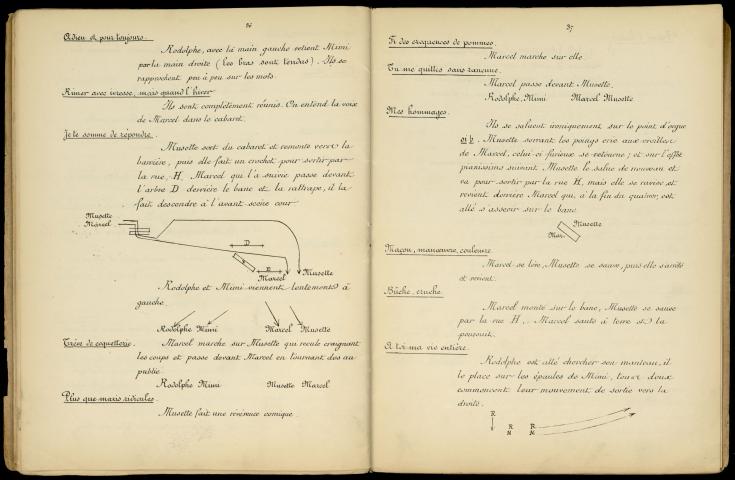 Adieu et pour toujours.
Rodolphe, avec la main gauche retient Mimi
par la main droite (les bras sont tendus). Ils se
rapprochent peu à peu sur les mots.
Aimer avec ivresse, mais quand l'hiver
Ils sont complètement réunis. On entend la voix
de Marcel dans le cabaret.
Je te somme de répondre.
Musette sort du cabaret et remonte vers la
barrière, puis elle fait un crochet pour sortir par
la rue H. Marcel qui l'a suivie passe devant
l'arbre D derrière le banc et la rattrape, il la
fait descendre à l'avant-scène cour
Musette
Marcel
D
E
Marcel Musette
Rodolphe et Mimi viennent lentement à
gauche
Rodolphe Mimi Marcel Musette
Trève de coquetterie. Marcel marche sur Musette qui recule craignant
les coups et passe devant Marcel en tournant dos au
public
Rodolphe Mimi Musette Marcel
Plus que maris ridicules.
Musette fait une révérence comique.
37
Fi des croqueuses de pommes.
Marcel marche sur elle.
Tu me quittes sans rancune.
Marcel passe devant Musette.
Rodolphe Mimi Marcel Musette
Mes hommages.
Ils se saluent ironiquement sur le point d'orgue
si b. Musette serrant les poings crie aux oreilles
de Marcel, celui-ci furieux se retourne; et sur l'effet
pianissimo suivant Musette le salue de nouveau et
va pour sortir par la rue H, mais elle se ravise et
revient derrière Marcel qui, à la fin du quatuor est
allé s'asseoir sur le banc
Musette
Mar.
Maçon, manœuvre, couleuvre.
Marcel se lève, Musette se sauve, puis elle s'arrête
et revient.
Bûche, cruche.
Marcel monte sur le banc, Musette se sauve
par la rue H. Marcel saute à terre et la
poursuit.
A toi ma vie entière.
Rodolphe est allé chercher son manteau, il
le place sur les épaules de Mimi, tous deux
commencent leur mouvement de sortie vers la
droite.
R
R R
M M